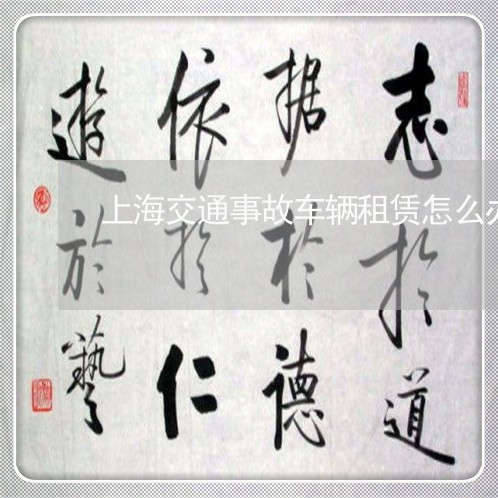 志於道
据於德
依於仁
遊於藝
上海交通事故车辆租赁怎么